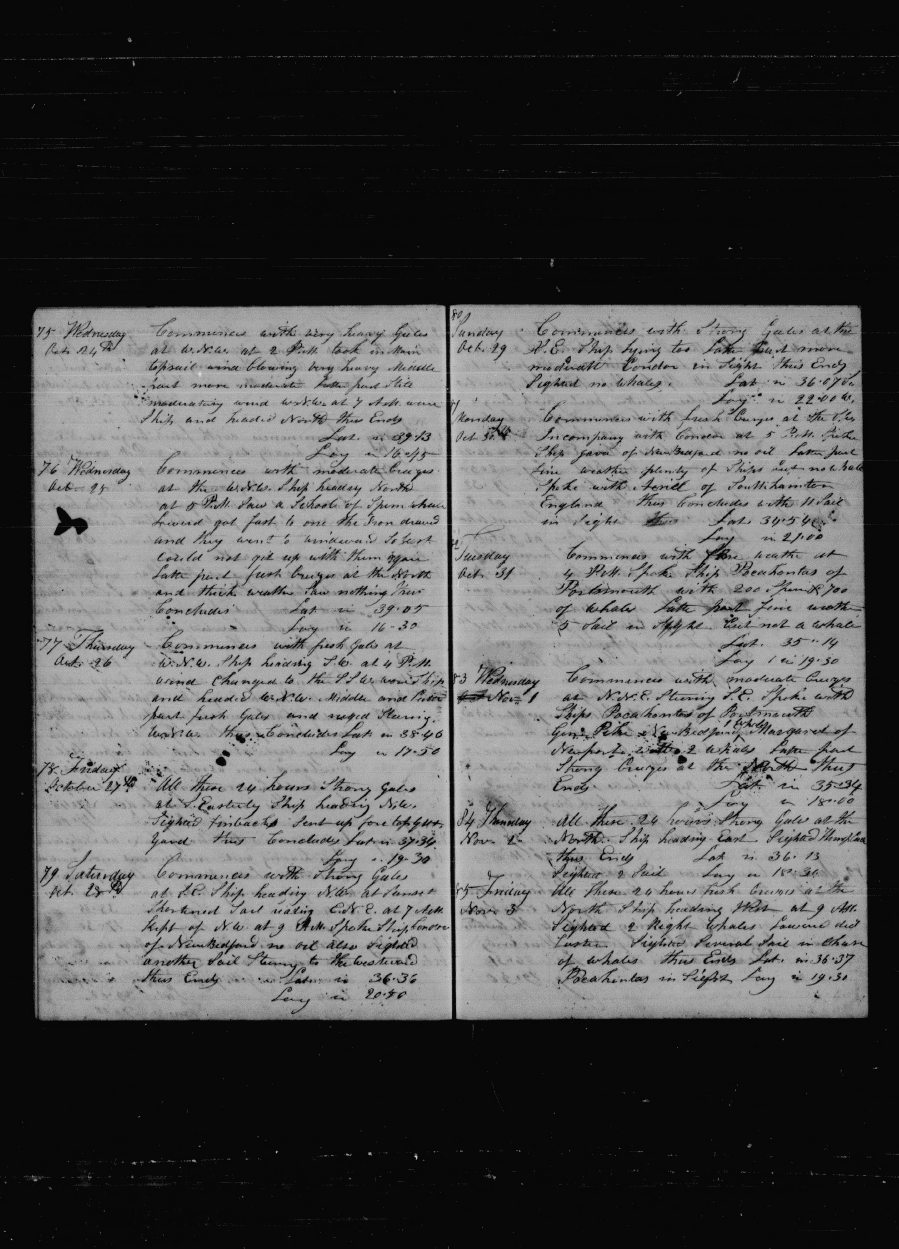 75 Wednesday Commences with very heavy Gales
Oct. 24th at W.N.W. at 2 P.M. took in Main
topsail wind blowing very heavy Middle
part more moderate Latter part Still
moderating wind W.N.W. at 7 A.M. wore
Ship and headed North thus Ends
Lat in 39-13
Long in 16-45
76 Wednesday Commences with moderate Breezes
Oct. 25 at the W.N.W. Ship heading North
at 5 P.M. Saw a School of Sperm whales
lowerd got fast to one the Iron drawed
and they went to windward So fast
could not get up with them
Latter part fresh Breezes at the North
and thick weather Saw nothing
Concludes Lat in 39-05
Long in 16-30
77 Thursday Commences with fresh Gales at
Oct. 26 W.N.W. Ship heading S.W. at 4 P.M.
wind changed to the S.S.W. wore Ship
and headed W.N.W. Middle and latter
part fresh Gales and rugid Steering
W.N.W. thus Concludes Lat in 38-46
Long in 17-50
78 Friday
October 27th All these 24 hours Strong Gales
at S. Easterly Ship heading N.W.
Sighted finbacks Sent up fore top Glt
yard thus Concludes Lat in 37-34
Long in 19-30
79 Saturday Commences with Strong Gales
Oct 28th at S.E. Ship heading N.W. at Sunset
Shortened Sail heading E.N.E. at 7 A.M.
Kept of N.W. at 9 A.M. Spoke Ship Condor
of New Bedford no oil also Sighted
another Sail Steering to the westward
thus Ends Lat in 36-36
Long in 20-50
80
Sunday Commences with Strong Gales at the
Oct. 29 S.E. Ship lying too Latter part more
moderate Condor in Sight thus Ends
Sighted no whales. Lat in 36-07
Long in 22-00 W.
Monday Commences with fresh Breezes at the
Oct 30th In company with Condor at 5 P.M. Spoke
Ship of New Bedford no oil Latter part
fine weather plenty of Ships but no whales
Spoke with of Southhamton
England thus Concludes with 11 Sail
in Sight Lat. 34-54
Long in 21-00
Tuesday Commences with fine weather at
Oct. 31 4 P.M. Spoke Ship Pocahontas of
Portsmouth with 200 Sperm & 700
of whale Latter part fine weather
5 Sail in Sight but not a whale
Lat. 35-14
Long in 19-30
83 Wednesday Commences with moderate Breezes
Nov 1 at N.N.E. Steering S.E. Spoke with
Ships Pocahontas of Portsmouth
Genl Pike New Bedford 1 whale Margaret of
Newport with 2 whales Latter part
Strong Breezes at the North thus
Ends Lat. in 35-34
Long in 18-00
84 Thursday All these 24 hours Strong Gales at the
Nov 2 North. Ship heading East Sighted
thus Ends Lat in 36-13
Sighted 2 Sail Long in 18-30
85 Friday All these 24 hours fresh Breezes at the
Nov 3 North Ship heading West at 9 A.M.
Sighted 2 Right Whales Lowerd did
Sighted Several Sail in Chase
of whales thus Ends Lat. in 36-37
Pocahontas in Sight Long in 19-30